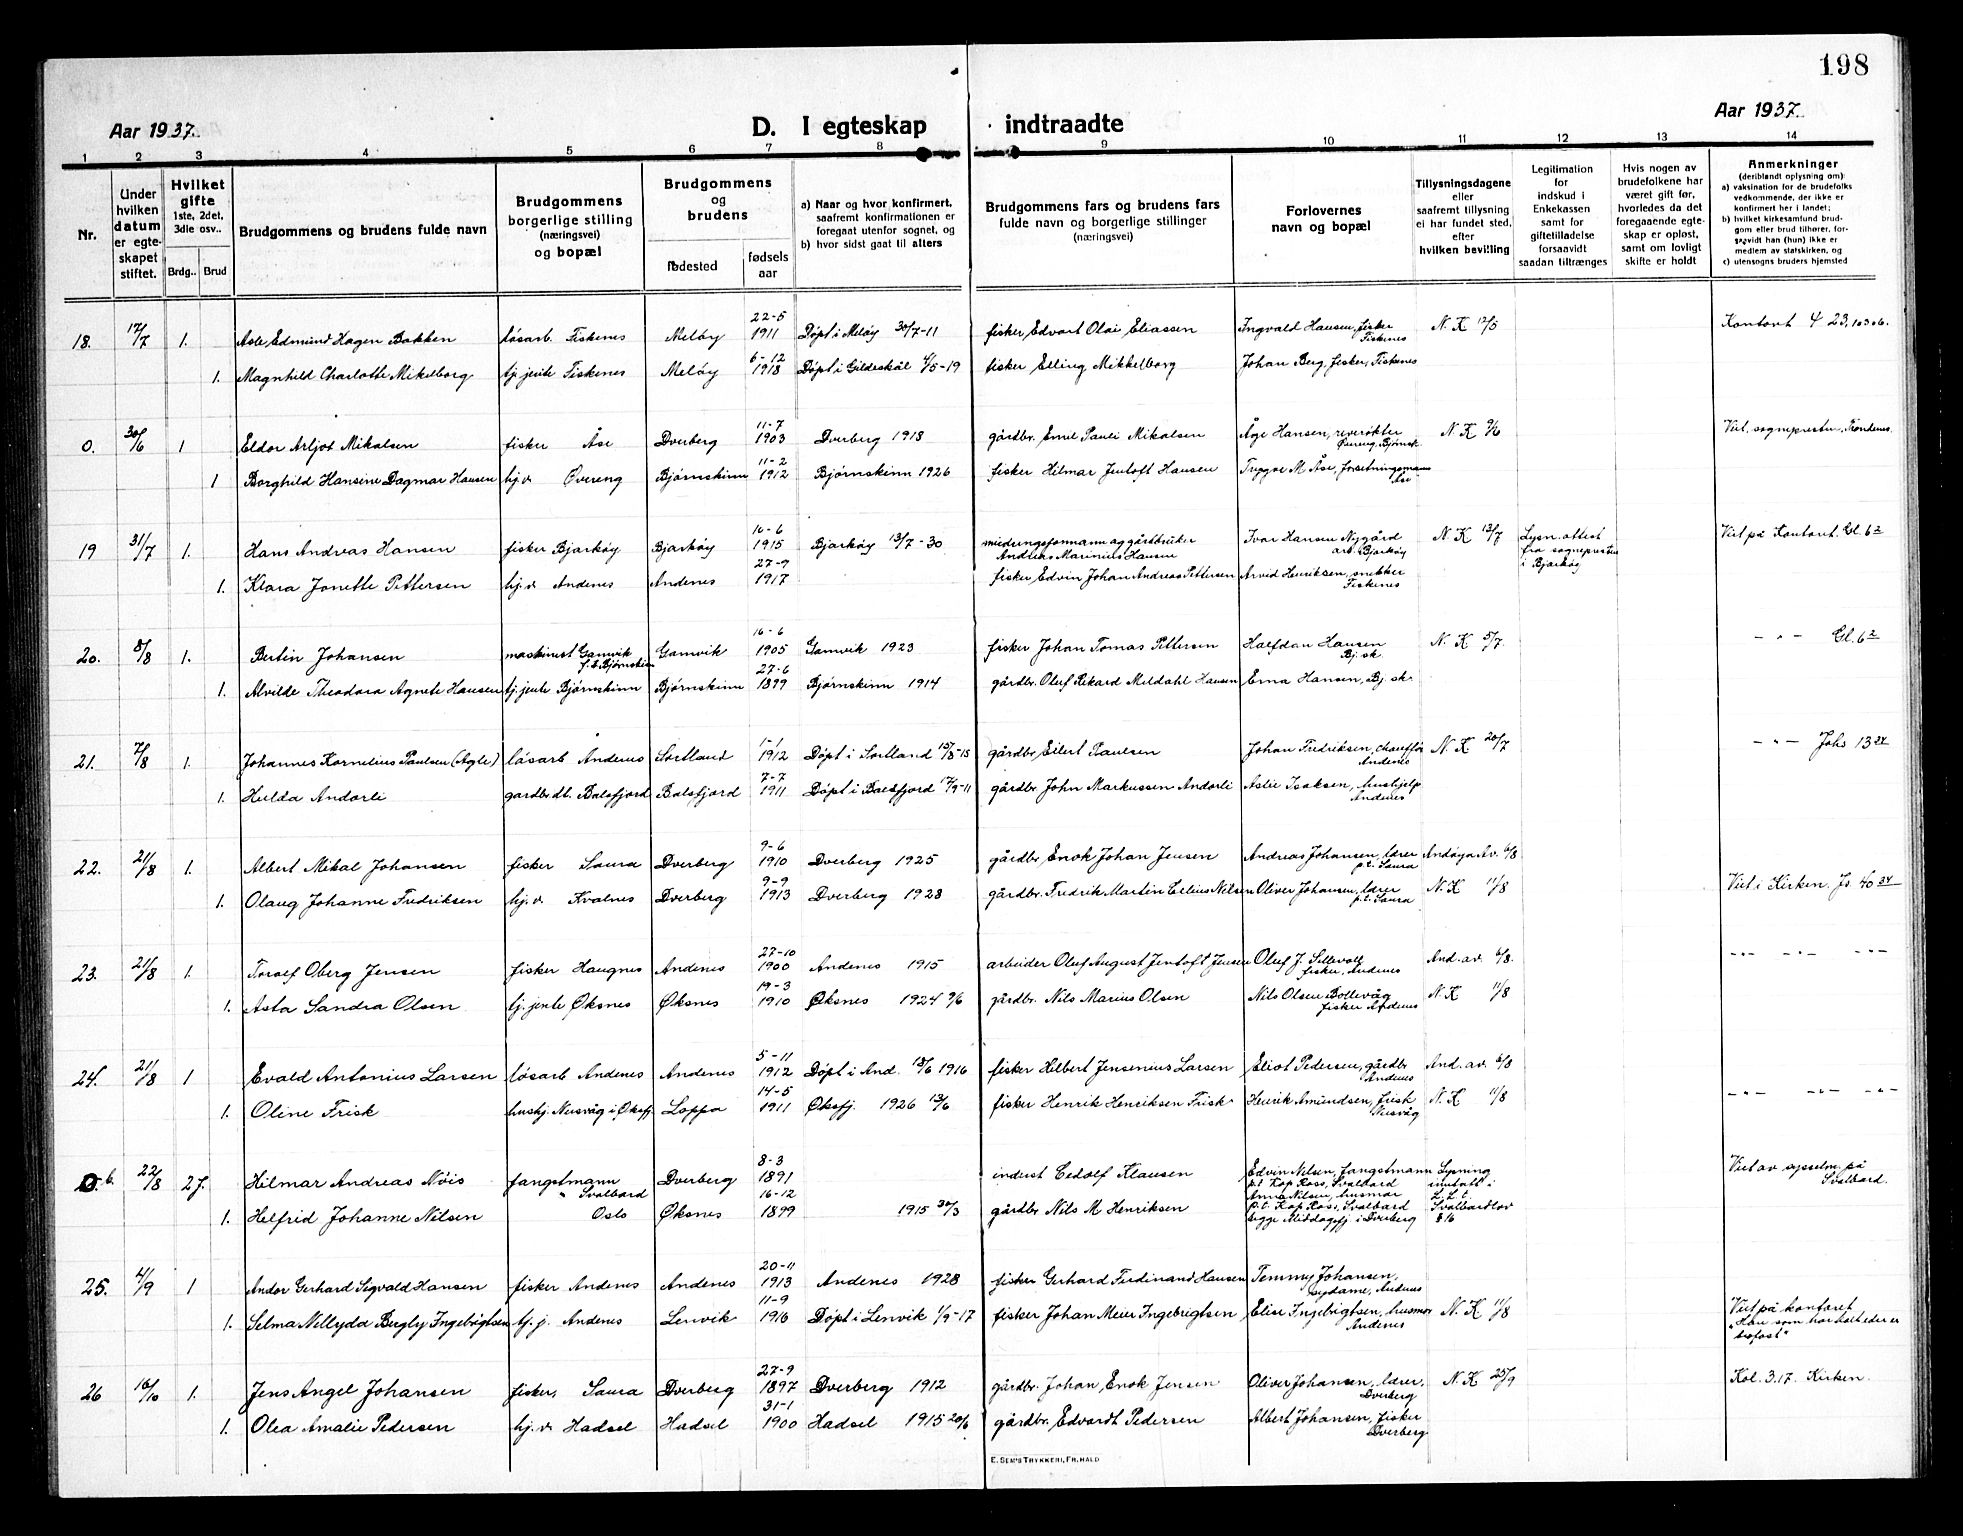 198
Aar 1937.
D. I egteskap indtraadte
Aar 1937.
1 2 3 4 5 6 7 8 9 10 11 12 13 14
Nr.
Under hvilken datum er egteskapet stiftet.
Hvilket gifte 1ste, 2det, 3dle osv..
Brdg.. Brud
Brudgommens og brudens fulde navn
Brudgommens borgerlige stilling (næringsvei) og bopæl
Brudgommens og brudens
fødested
fødsels aar
a) Naar og hvor konfirmert, saafremt konfirmationen er foregaat utenfor sognet, og
b) hvor sidst gaat til alters
Brudgommens fars og brudens fars fulde navn og borgerlige stillinger (næringsvei)
Forlovernes navn og bopæl
Tillysningsdagene eller saafremt tillysning ei har fundet sted, efter hvilken bevilling
Legitimation for indskud i Enkekassen samt for giftetilladelse forsaavidt saadan tiltrænges
Hvis nogen av brudefolkene har været gift før, hvorledes da det foregaaende egteskap er opløst, samt om lovligt skifte er holdt
Anmerkninger
(deriblandt oplysning om)
a) vaksination for de brudefolks vedkommende, der ikke er konfirmert her i landet;
b) hvilket kirkesamfund brudgom eller brud tilhører, forsaavidt han (hun) ikke er medlem av statskirken, og
c) utensogns bruders hjemsted
18. 17/7 1. Asle Edmund Hagen Bakken løsarb. Fiskenes Meløy 22-5 1911 Døpt i Meløy 30/7-11 fisker Edvart Olai Eliassen Ingvald Hansen, fisker Fiskenes N. K 12/5 Kontort 4 23, 10306.
1. Magnhild Charlotte Mikelborg tj. jente Fiskenes Meløy 6-12 1918 Døpt i Gildeskål 4/5-19 fisker Elling Mikkelborg Johan Berg, fisker, Fiskenes
0. 30/6 1 Eldor Arljot Mikalsen fisker Åse Dverberg 11-7 1903 Dverberg 1918 gårdbr. Emil Pauli Mikalsen Åge Hansen, reverøkter Øvereng, Bjørnsk N. K 2/6 Viet. sognepresten, Trondenes.
1 Borghild Hansine Dagmar Hansen hj.v. Øvereng Bjørnskinn 11-2 1912 Bjørnskinn 1926 fisker Hilmar Jentoft Hansen Trygve M Åse, forretningsmann Åse
19 31/7 1. Hans Andreas Hansen fisker Bjarkøy Bjarkøy 10-6 1915 Bjarkøy 13/7-30 mudringsformann og gårdbruker Andreas Marinius Hansen Ivar Hansen Nygård arb. Bjarkøy N. K 13/7 Lysn.attest fra sognepresten i Bjarkøy Viet på Kontoret. Gl. 6 2
1. Klara Jonette Pettersen hj.v. Andenes Andenes 27-9 1917 fisker Edvin Johan Andreas Pettersen Arvid Henriksen, snekker Fiskenes
20. 8/8 1. Bertin Johansen maskinist Gamvik f.t. Bjørnskinn Gamvik 16-6 1905 Gamvik 1923 fisker Johan Tomas Pettersen Halfdan Hansen Bj.sk. N. K 5/7. - " - Gl. 6 2
1. Alvilde Theodora Agnete Hansen tj. jente Bjørnskinn Bjørnskinn 27-6 1899 Bjørnskinn 1914 gårdbr. Oluf Rikard Mildahl Hansen Erna Hansen, Bj. sk.
21. 7/8 1. Johannes Kornelius Paulsen (Agle) løsarb Andenes Sortland 1-1 1912 Døpt i Sortland 15/8-15 gårdbr. Eilert Paulsen Johan Fredriksen, chauffør Andenes N. K 20/7 - " - Johs 13 24
1. Hulda Andorli gardbr.dt. Balsfjord Balsfjord 7-7 1911 Døpt i Balsfjord 17/9-11 gårdbr. John Markussen Andorli Aslie Isaksen, hushjelp Andenes
22. 21/8 1. Albert Mikal Johansen fisker Saura Dverberg 9-6 1910 Dverberg 1925 gårdbr. Enok Johan Jensen Andreas Johansen, lærer p.t. Saura Andøya Av. 6/8.
1. Olaug Johanne Fredriksen hj. v. Kvalnes Dverberg 9-9 1913 Dverberg 1928 gårdbr. Fredrik Martin Celius Nilsen Oliver Johansen, lærer p.t. Saura N. K 11/8 Viet i Kirken. Js. 40 34
23. 21/8 1. Torolf Oberg Jensen fisker Haugnes Andenes 27-10 1900 Andenes 1915 arbeider Oluf August Jentoft Jensen Oluf J. Sellevoll fisker, Andenes And. av. 6/8. - " - - " - - " -
1. Asta Sandra Olsen tj. jente Øksnes Øksnes 19-3 1910 Øksnes 1924 9/6 gårdbr. Nils Marius Olsen Nils Olsen Bollevåg fisker Andenes N. K 11/8
24. 21/8 1 Evald Antonius Larsen løsarb Andenes Andenes 5-11 1912 Døpt i And. 18/6 1916 fisker Hilbert Jensenius Larsen Eliot Pedersen, gårdbr Andenes And. av. 6/8
1. Oline Frisk hushj. Nusvåg i Øksfj. Loppa 14-5 1911 Øksfj. 1926 13/6 fisker Henrik Henriksen Frisk Henrik Amundsen, frisk Nusvåg N. K 11/8 - " - - " - - " -
0.b. 22/8 2 g. Hilmar Andreas Nøis fangstmann " Svalbard Dverberg 8-3 1891 indust Cedolf Klausen Edvin Nilsen, fangstmann p.t. Kap Ross, Svalbard Lysning inntatt i Viet av sysselm. på Svalbard.
1. Helfrid Johanne Nilsen Oslo Øksnes 16-12 1899 1915 30/3 gårdbr Nils M Henriksen Anna Nilsen, husmor p.t. Kap Ross, Svalbard begge Middagsfj. i Dverberg Svalbardlov § 16
25. 4/9 1 Andor Gerhard Sigvald Hansen fisker Andenes Andenes 20-11 1913 Andenes 1928 fisker Gerhard Ferdinand Hansen Temmy Johansen, sydame, Andenes
1. Selma Nellyda Bergly Ingebrigtsen tj. j. Andenes Lenvik 11-9 1916 Døpt i Lenvik 1/9-17 fisker Johan Meier Ingebrigtsen Elise Ingebrigtsen, husmor Andenes N. K 11/8 Viet på kontoret "Han som har kalt eder er trofast"
26 16/10 1. Jens Angel Johansen fisker, Saura Dverberg 27-9 1897 Dverberg 1912 gårdbr. Johan Enok Jensen Oliver Johansen, lærer, Dverberg N. K 25/9 Kol. 3.17. Kirken.
1. Olea Amalie Pedersen hj. v. Hadsel Hadsel 31-1 1900 Hadsel 1915 20/6 gårdbr. Edvardt Pedersen Albert Johansen, fisker Dverberg
E. SEM'S TRYKKERI, FR.HALD